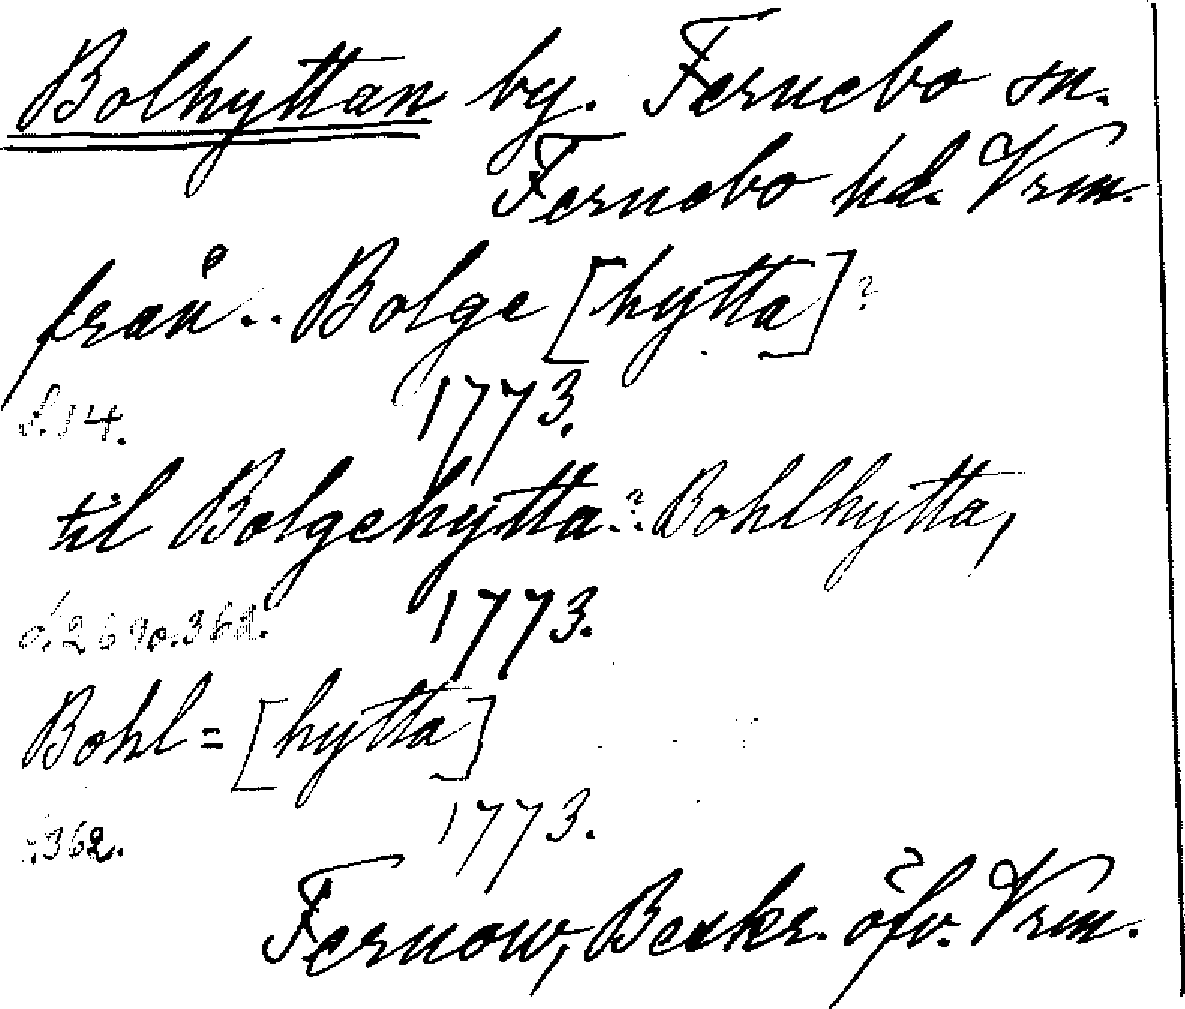 Bolhyttan by. Fernebo sn.
Fernebo hd. Vrm.
från .. Bolge [hytta]?
s. 14. 1773.
til Bolgehytta ?: Bohlhytta,
s. 269 o. 362. 1773.
Bohl = [hytta]
s. 362. 1773.
Fernow, Beskr. öfv. Vrm.